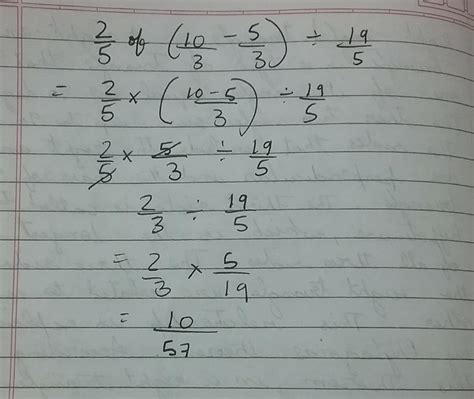 2/5 of (10/3 - 5/3) ÷ 19/5
= 2/5 × (10-5/3) ÷ 19/5
2/5 × 5/3 ÷ 19/5
2/3 ÷ 19/5
= 2/3 × 5/19
= 10/57